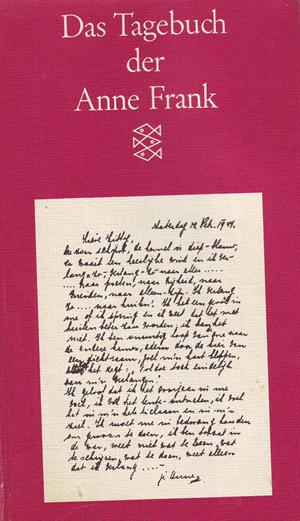 Das Tagebuch
der
Anne Frank
Zaterdag 12 Feb. 1944.
Lieve Kitty,
De zon schijnt, de hemel is diep-blauw,
er waait een heerlijke wind en ik ver-
lang-zo-, verlang-zo-naar alles.....
.... Naar praten, naar vrijheid, naar
vrienden, naar alleen-zijn. Ik verlang
zo.... naar huilen! Ik heb een gevoel in
me of ik spring en ik weet dat het met
huilen beter zou worden, ik kan het
niet. Ik ben onrustig, loop van ene naar
de andere kamer, adem door de kier van
een dicht raam, voel m'n hart kloppen,
het zegt, Voldoe toch eindelijk
aan m'n verlangens.
Ik geloof dat ik het voorjaar in me
voel, ik voel het lente-ontwaken, ik voel
het in m'n hele lichaam en in m'n
ziel. Ik moet me in bedwang houden
om gewoon te doen, ik ben totaal in
de war, weet niet wat te lezen, wat
te schrijven, wat te doen, weet alleen
dat ik verlang....
je Anne.